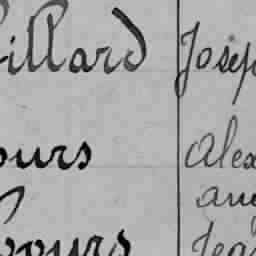 illard Josep
ours Alex
and
oours Jea